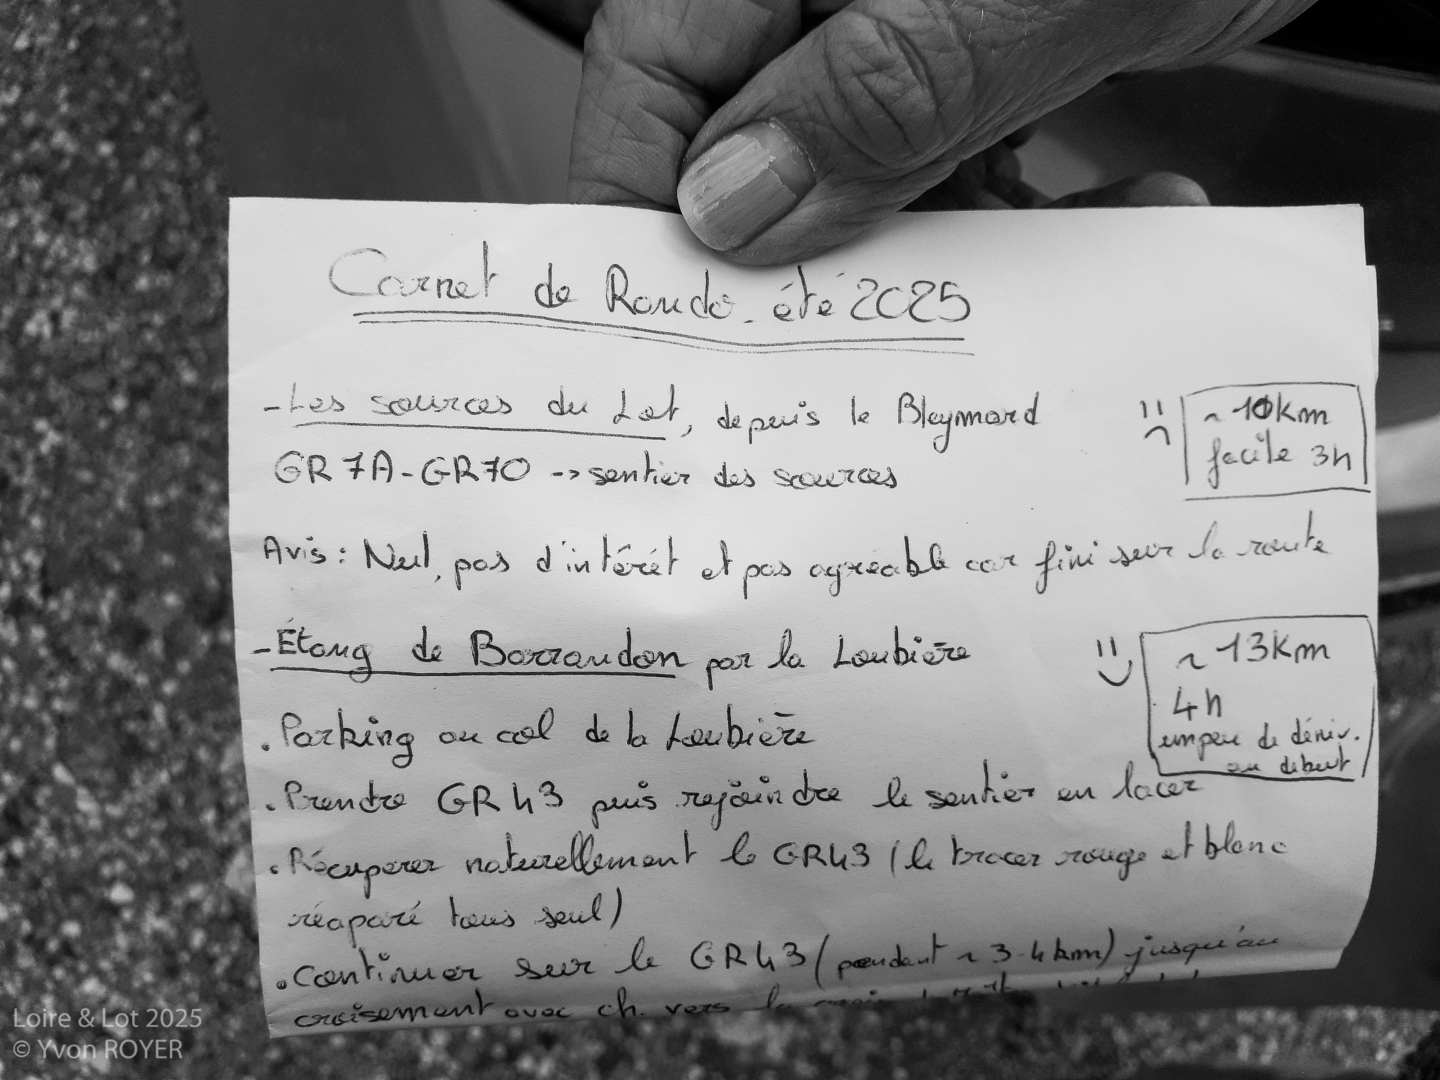 Carnet de Rando. été 2025
- Les sources du Lot, depuis le Bleymard
~ 10km
facile 3h
GR 7A - GR70 -> sentier des sources
Avis : Nul, pas d'intérêt et pas agréable car fini sur la route
- Étang de Barrandon par la Loubière
~ 13km
4h
un peu de déniv.
au début
. Parking au col de la Loubière
. Prendre GR43 puis rejoindre le sentier en lacer
. Récuperer naturellement le GR43 (le tracer rouge et blanc
réaparé tous seul)
. Continuer sur le GR43 (pendant ~ 3-4km) jusqu'au
croisement avec ch. vers la
Loire & Lot 2025
© Yvon ROYER